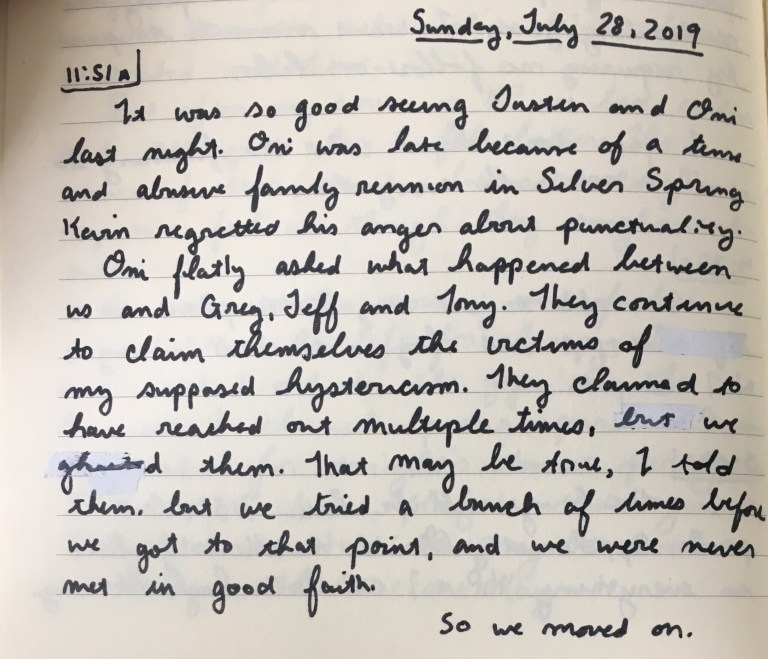 Sunday, July 28, 2019
11:51 A
It was so good seeing Justin and Omi
last night. Omi was late because of a tense
and abusive family reunion in Silver Spring
Kevin regretted his anger about punctuality.
Omi flatly asked what happened between
us and Greg, Jeff and Tony. They continue
to claim themselves the victims of
my supposed hystericism. They claimed to
have reached out multiple times, but we
ghosted them. That may be true, I told
them, but we tried a bunch of times before
we got to that point, and we were never
met in good faith.
So we moved on.